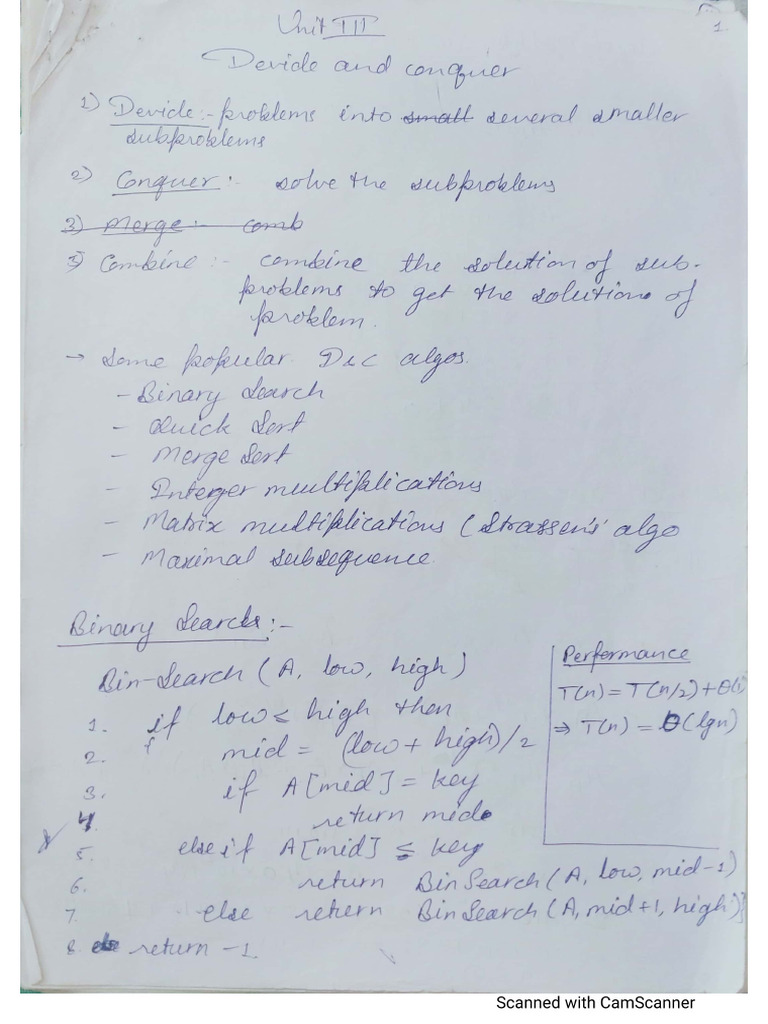 1
Unit III
Devide and conquer
1) Devide:- problems into small several smaller
subproblems
2) Conquer:- solve the subproblems
3) Merge:- comb
3) Combine:- combine the solution of sub-
problems to get the solution of
problem.
→ Some popular D&C algos.
- Binary Search
- Quick Sort
- Merge Sort
- Interger multiplications
- Matrix multiplications (Strassen's algo
- Maximal subsequence.
Binary Search:-
Bin-Search (A, low, high)
1. if low ≤ high then
2. mid = (low + high)/2
3. if A[mid] = key
4. return mid
5. else if A[mid] ≤ key
6. return BinSearch (A, low, mid-1)
7. else retern BinSearch (A, mid+1, high)}
8. return -1.
Performance
T(n) = T(n/2) + θ(1)
⇒ T(n) = θ(lgn)
Scanned with CamScanner